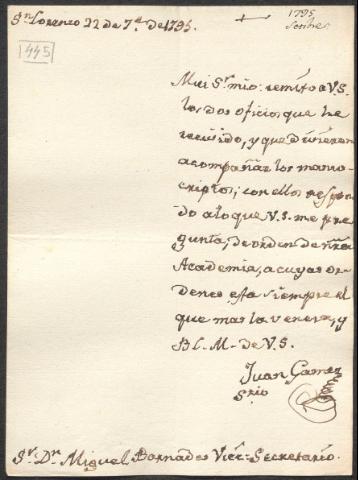 Sn. Lorenzo 22 de 7e. de 1795.
1795
445
Mui Sr. mio: remito a V.S.
los dos oficios que he
recivido, y que devieron
acompañar los manu-
criptos; con ellos respon
do a lo que V.S. me pre
gunta, de orden de ñra
Academia, a cuyas or-
denes esta siempre el
que mas la venera, y
B. L. M. de V.S.
Juan Gamez
Sr. Dn. Miguel Barnades Vice-Secretario.